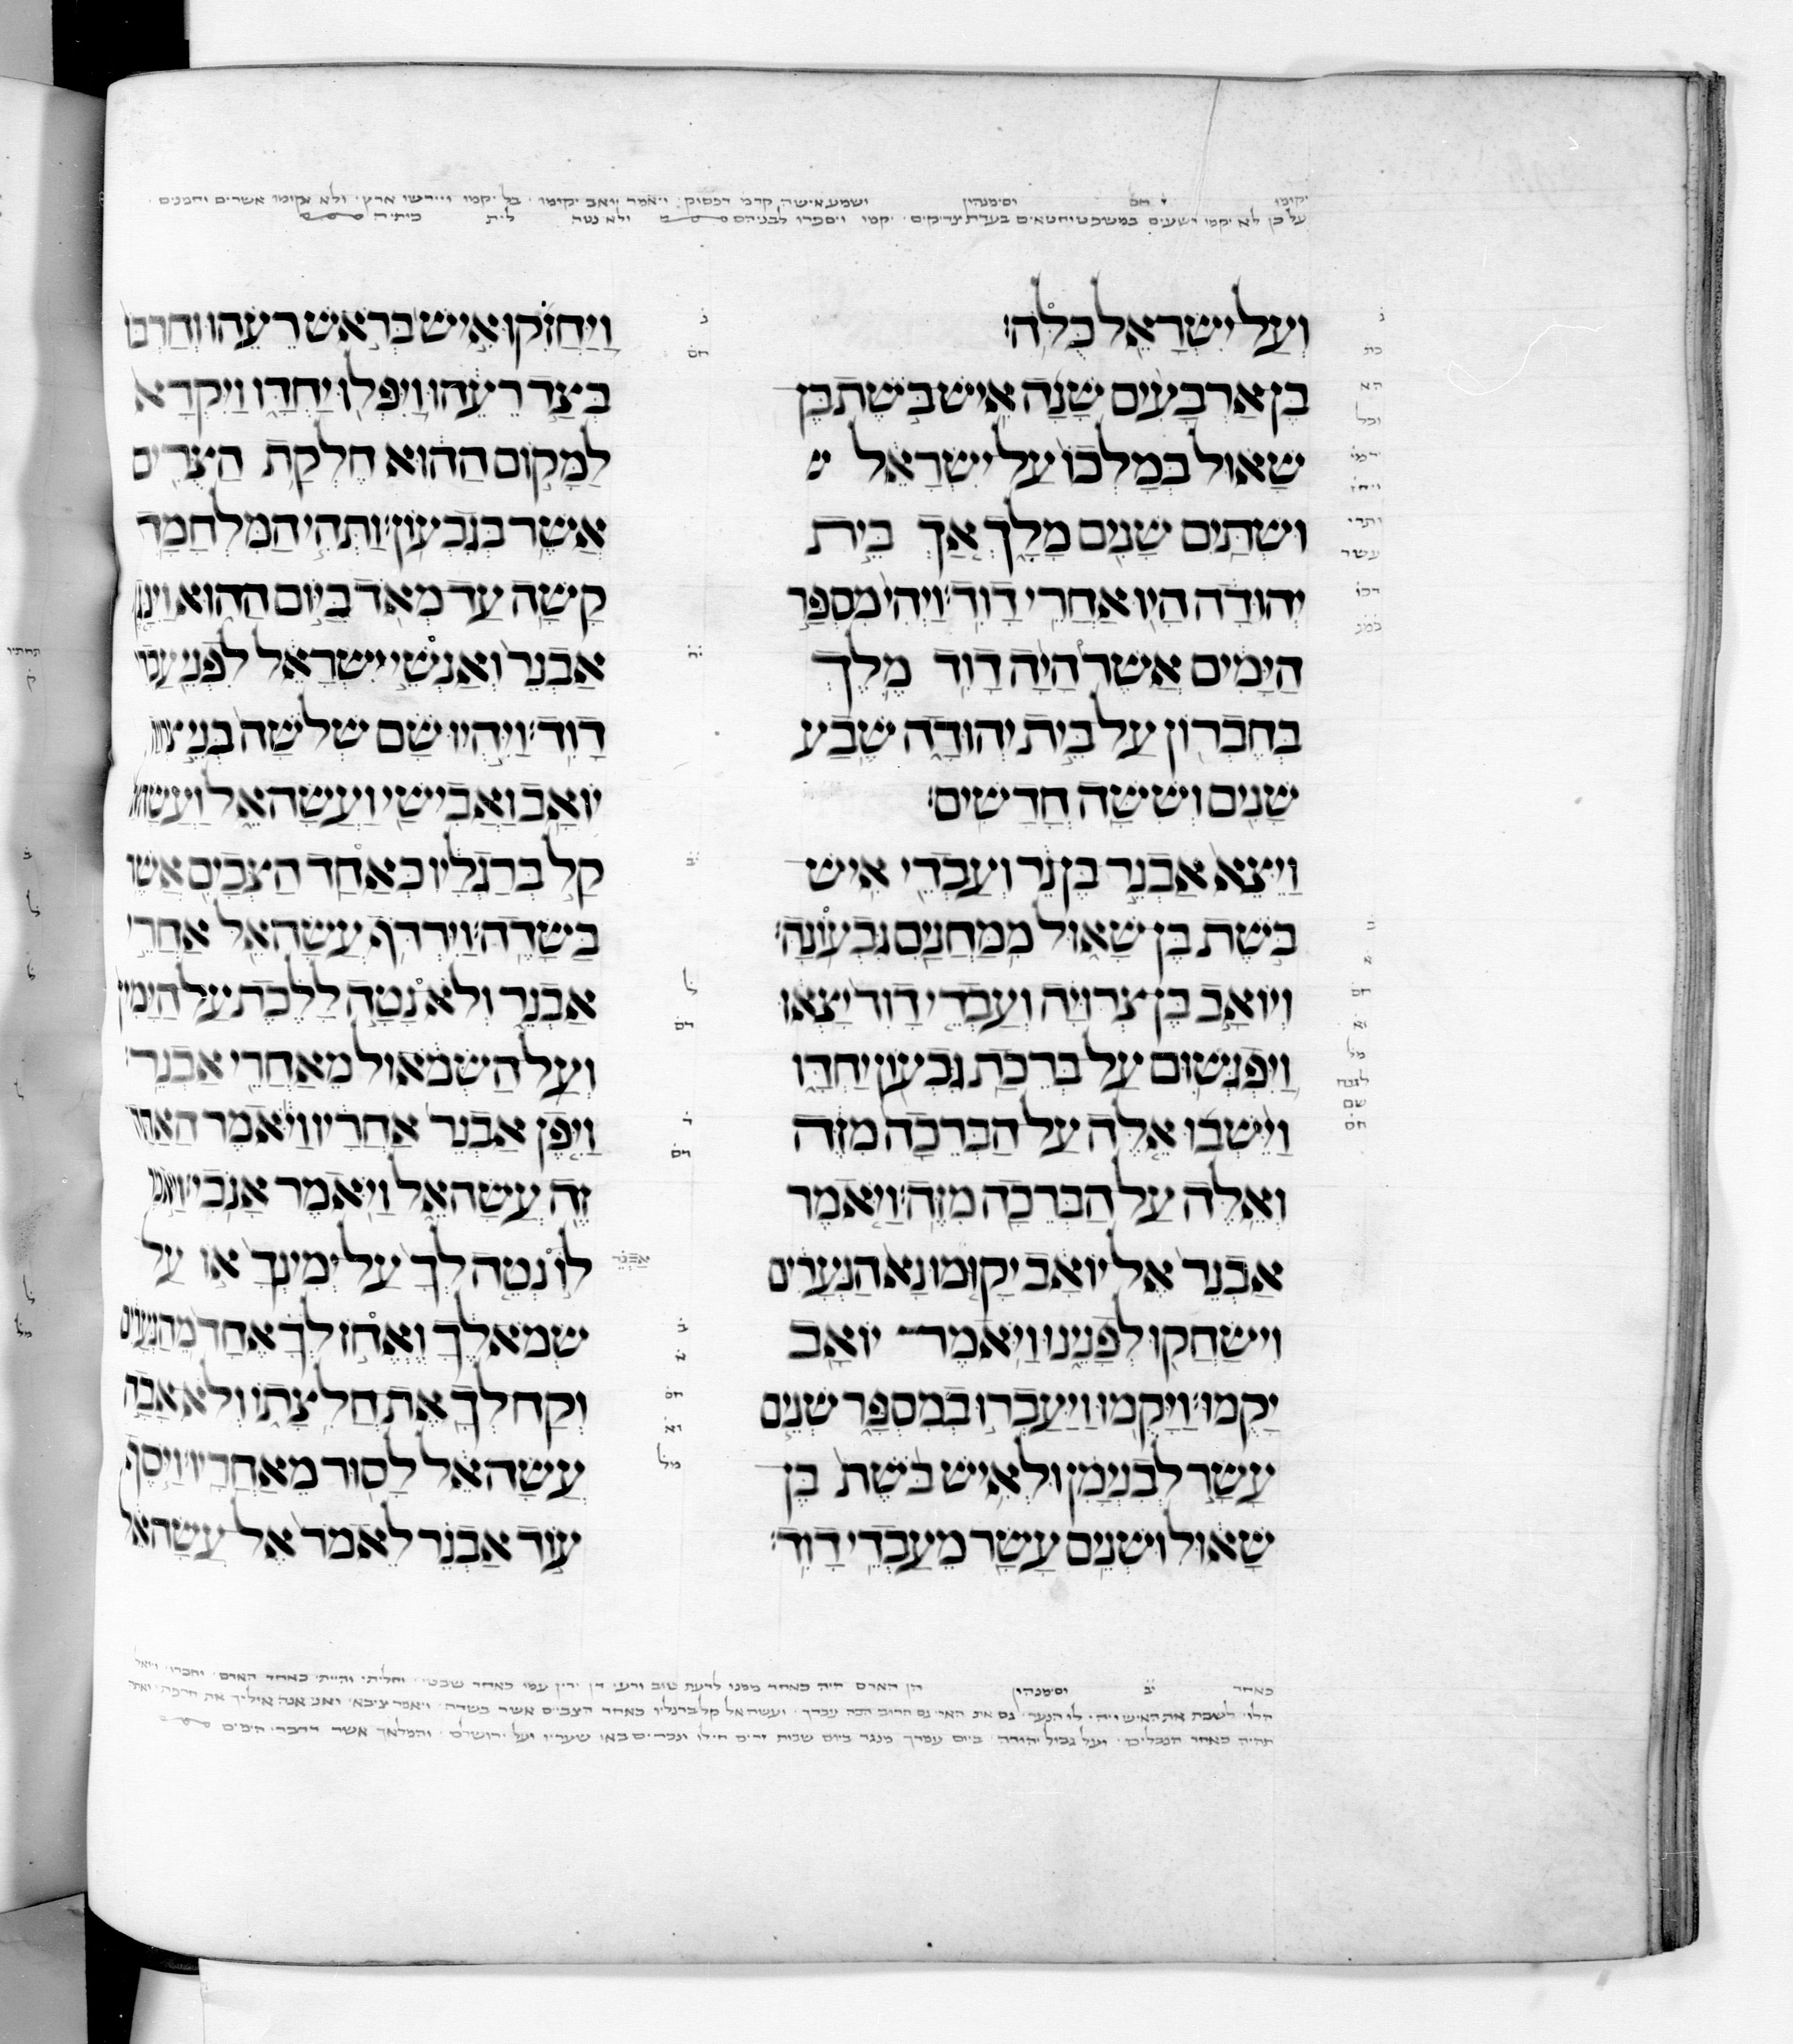 יקומו חס וסימנהון ושמע אישה קדמ דפסוק ויאמר יואב יקומו בל יקמו ויירשו ארץ ולא יקומו אשרים וחמנים
על כן לא יקמו רשעים במשפט וחטאים בעדת צדיקים יקמו ויספרו לבניהם ולא נטה לית כתיה
וְעַל יִשְׂרָאֵל כֻּלֹּה׃
בֶּן אַרְבָּעִים שָׁנָה אִישׁ בֹּשֶׁת בֶּן
שָׁאוּל בְּמָלְכוֹ עַל יִשְׂרָאֵל
וּשְׁתַּיִם שָׁנִים מָלָךְ אַךְ בֵּית
יְהוּדָה הָיוּ אַחֲרֵי דָוִד׃ וַיְהִי מִסְפַּר
הַיָּמִים אֲשֶׁר הָיָה דָוִד מֶלֶךְ
בְּחֶבְרוֹן עַל בֵּית יְהוּדָה שֶׁבַע
שָׁנִים וְשִׁשָּׁה חֳדָשִׁים׃
וַיֵּצֵא אַבְנֵר בֶּן נֵר וְעַבְדֵי אִישׁ
בֹּשֶׁת בֶּן שָׁאוּל מִמַּחֲנַיִם גִּבְעוֹנָה׃
וְיוֹאָב בֶּן צְרוּיָה וְעַבְדֵי דָוִד יָצְאוּ
וַיִּפְגְּשׁוּם עַל בְּרֵכַת גִּבְעוֹן יַחְדָּו
וַיֵּשְׁבוּ אֵלֶּה עַל הַבְּרֵכָה מִזֶּה
וְאֵלֶּה עַל הַבְּרֵכָה מִזֶּה׃ וַיֹּאמֶר
אַבְנֵר אֶל יוֹאָב יָקוּמוּ נָא הַנְּעָרִים
וִישַׂחֲקוּ לְפָנֵינוּ וַיֹּאמֶר יוֹאָב
יָקֻמוּ׃ וַיָּקֻמוּ וַיַּעַבְרוּ בְמִסְפָּר שְׁנֵים
עָשָׂר לְבִנְיָמִן וּלְאִישׁ בֹּשֶׁת בֶּן
שָׁאוּל וּשְׁנֵים עָשָׂר מֵעַבְדֵי דָוִד׃
וַיַּחֲזִקוּ אִישׁ בְּרֹאשׁ רֵעֵהוּ וְחַרְבּוֹ
בְּצַד רֵעֵהוּ וַיִּפְּלוּ יַחְדָּו וַיִּקְרָא
לַמָּקוֹם הַהוּא חֶלְקַת הַצֻּרִים
אֲשֶׁר בְּגִבְעוֹן׃ וַתְּהִי הַמִּלְחָמָה
קָשָׁה עַד מְאֹד בַּיּוֹם הַהוּא וַיִּנָּגֶף
אַבְנֵר וְאַנְשֵׁי יִשְׂרָאֵל לִפְנֵי עַבְדֵי
דָוִד׃ וַיִּהְיוּ שָׁם שְׁלֹשָׁה בְּנֵי צְרוּיָה
יוֹאָב וַאֲבִישַׁי וַעֲשָׂהאֵל וַעֲשָׂהאֵל
קַל בְּרַגְלָיו כְּאַחַד הַצְּבָיִם אֲשֶׁר
בַּשָּׂדֶה׃ וַיִּרְדֹּף עֲשָׂהאֵל אַחֲרֵי
אַבְנֵר וְלֹא נָטָה לָלֶכֶת עַל הַיָּמִין
וְעַל הַשְּׂמֹאול מֵאַחֲרֵי אַבְנֵר׃
וַיִּפֶן אַבְנֵר אַחֲרָיו וַיֹּאמֶר הַאַתָּה
זֶה עֲשָׂהאֵל וַיֹּאמֶר אָנֹכִי׃ וַיֹּאמֶר
לוֹ אַבְנֵר נְטֵה לְךָ עַל יְמִינְךָ אוֹ עַל
שְׂמֹאלֶךָ וֶאֱחֹז לְךָ אֶחָד מֵהַנְּעָרִים
וְקַח לְךָ אֶת חֲלִצָתוֹ וְלֹא אָבָה
עֲשָׂהאֵל לָסוּר מֵאַחֲרָיו׃ וַיֹּסֶף
עוֹד אַבְנֵר לֵאמֹר אֶל עֲשָׂהאֵל
כאחד יב וסימנהון הן האדם היה כאחד ממנו לדעת טוב ורע דן ידין עמו כאחד שבטי וחליתי והייתי כאחד האדם וחברו ויואל
הלוי לשבת את האיש ויהי לו הנער גם את הארי גם הדוב הכה עבדך ועשהאל קל ברגליו כאחד הצבים אשר בשדה ויאמר ציבא ואני אנה אוליך את חרפתי ואתה
תהיה כאחד הנבלים ועל גבול יהודה ביום עמדך מנגד ביום שבות זרים חילו ונכרים באו שעריו ועל ירושלם והמלאך אשר דדברי הימים